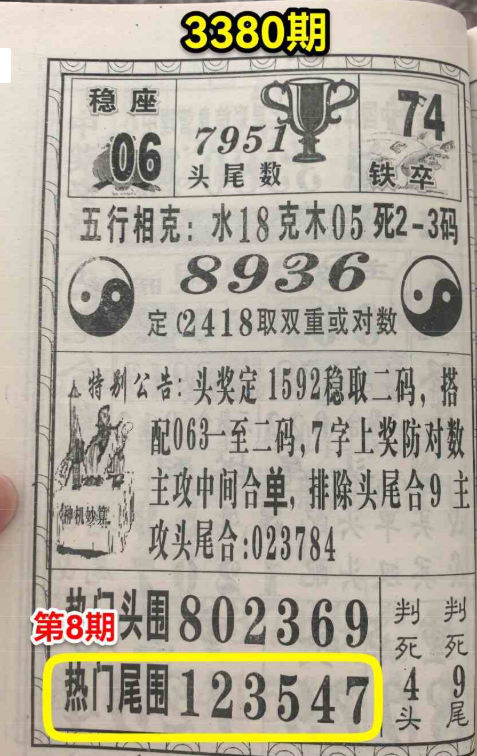 3380期
稳座
06
7951
头尾数
74
铁卒
五行相克：水18克木05死2-3码
8936
定(2418取双重或对数
特别公告：头奖定1592稳取二码，搭
配063一至二码，7字上奖防对数
主攻中间合单，排除头尾合9 主
攻头尾合:023784
神机妙算
热门头围802369
第8期
热门尾围123547
判死4头
判死9尾